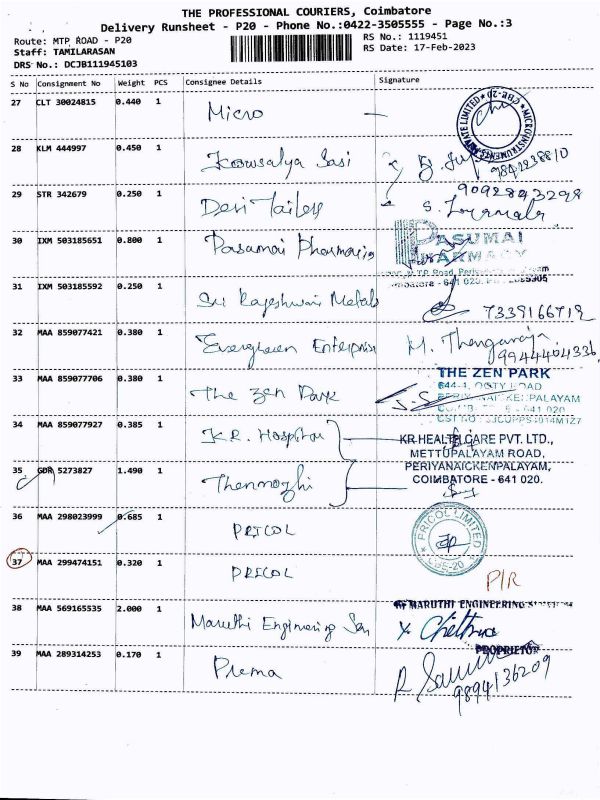 THE PROFESSIONAL COURIERS, Coimbatore
Delivery Runsheet - P20 - Phone No.:0422-3505555 - Page No.:3
Route: MTP ROAD - P20
RS No.: 1119451
Staff: TAMILARASAN
RS Date: 17-Feb-2023
DRS No.: DCJB111945103
S No Consignment No Weight PCS Consignee Details Signature
27 CLT 30024815 0.440 1 Micro
MICROINSTRUMENTS PRIVATE LIMITED CBE-20
28 KLM 444997 0.450 1 Kowsalya Sasi
9842238810
29 STR 342679 0.250 1 Devi Tailess
9092843298
30 IXM 503185651 0.800 1 Pasumai Pharmacy
PASUMAI
PHARMACY
31 IXM 503185592 0.250 1 Sri Rajeshwari Metals
7339166719
32 MAA 859077421 0.380 1 Evergreen Enterprise M. Thangaraja
9944404336
33 MAA 859077706 0.380 1 The Zen Park
THE ZEN PARK
644-1, OOTY ROAD
PERIYANAICKENPALAYAM
34 MAA 859077927 0.385 1 K.R. Hospital
KR HEALTHCARE PVT. LTD.,
METTUPALAYAM ROAD,
PERIYANAICKENPALAYAM,
COIMBATORE - 641 020.
35 GDR 5273827 1.490 1 Thenmozhi
36 MAA 298023999 0.685 1 PRICOL
PRICOL LIMITED CBE-20
37 MAA 299474151 0.320 1 PRICOL
P/R
38 MAA 569165535 2.000 1 Maruthi Engineering Ser
MARUTHI ENGINEERING
PROPRIETOR
39 MAA 289314253 0.170 1 Prema
9894136209